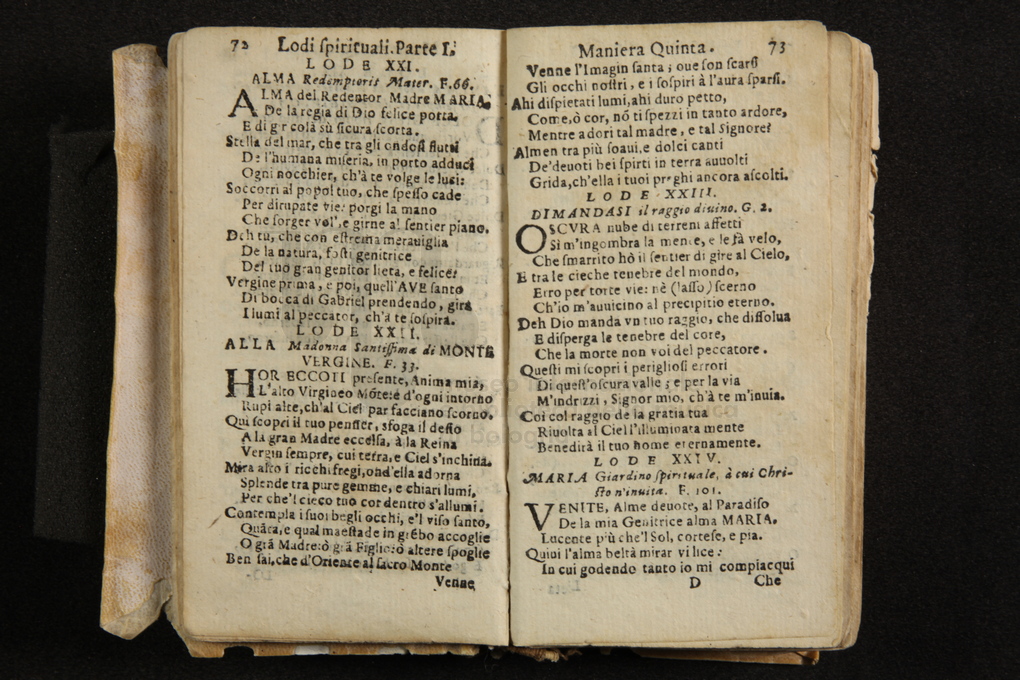 72 Lodi ſpirituali. Parte I.
LODE XXI.
ALMA Redemptoris Mater. F. 66.
ALMA del Redentor Madre MARIA,
De la regia di Dio felice porta.
E di gir colà sù ſicura ſcorta.
Stella del mar, che tra gli ondoſi flutti
De l'humana miſeria, in porto adduci
Ogni nocchier, ch'à te volge le luci:
Soccorri al popol tuo, che ſpeſſo cade
Per dirupate vie: porgi la mano
Che ſorger vol', e girne al ſentier piano.
Deh tu, che con eſtrema merauiglia
De la natura, foſti genitrice
Del tuo gran genitor lieta, e felice:
Vergine prima, e poi, quell'AVE ſanto
Di bocca di Gabriel prendendo, gira
I lumi al peccator, ch'à te ſoſpira.
LODE XXII.
ALLA Madonna Santiſſima di MONTE
VERGINE. F. 33.
HOR ECCOTI preſente, Anima mia,
L'alto Virgineo Mõte: è d'ogni intorno
Rupi alte, ch'al Ciel par facciano ſcorno.
Qui ſcopri il tuo penſier, sfoga il deſio
A la gran Madre eccelſa, à la Reina
Vergin ſempre, cui terra, e Ciel s'inchina.
Mira alto i ricchi fregi, ond'ella adorna
Splende tra pure gemme, e chiari lumi,
Per che'l cieco tuo cor dentro s'allumi.
Contempla i ſuoi begli occhi, e'l viſo ſanto,
Quãta, e qual maeſtade in grẽbo accoglie
O grã Madre: ò grã Figlio: ò altere ſpoglie
Ben ſai, che d'Oriente al ſacro Monte
Venne
Maniera Quinta. 73
Venne l'Imagin ſanta; oue ſon ſcarſi
Gli occhi noſtri, e i ſoſpiri à l'aura ſparſi.
Ahi diſpietati lumi, ahi duro petto,
Come, ò cor, nõ ti ſpezzi in tanto ardore,
Mentre adori tal madre, e tal Signore?
Almen tra più ſoaui, e dolci canti
De' deuoti bei ſpirti in terra auuolti
Grida, ch'ella i tuoi preghi ancora aſcolti.
LODE XXIII.
DIMANDASI il raggio diuino. G. 2.
OSCVRA nube di terreni affetti
Sì m'ingombra la mente, e le fà velo,
Che ſmarrito hò il ſentier di gire al Cielo,
E tra le cieche tenebre del mondo,
Erro per torte vie: nè (laſſo) ſcerno
Ch'io m'auuicino al precipitio eterno.
Deh Dio manda vn tuo raggio, che diſſolua
E diſperga le tenebre del core,
Che la morte non voi del peccatore.
Queſti mi ſcopri i periglioſi errori
Di queſt'oſcura valle; e per la via
M'indrizzi, Signor mio, ch'à te m'inuia.
Coſi col raggio de la gratia tua
Riuolta al Ciel l'illuminata mente
Benedirà il tuo nome eternamente.
LODE XXIV.
MARIA Giardino ſpirituale, à cui Chri-
ſto n'inuita. F. 101.
VENITE, Alme deuote, al Paradiſo
De la mia Genitrice alma MARIA.
Lucente più che'l Sol, corteſe, e pia.
Quiui l'alma beltà mirar vi lice:
In cui godendo tanto io mi compiacqui
D Che